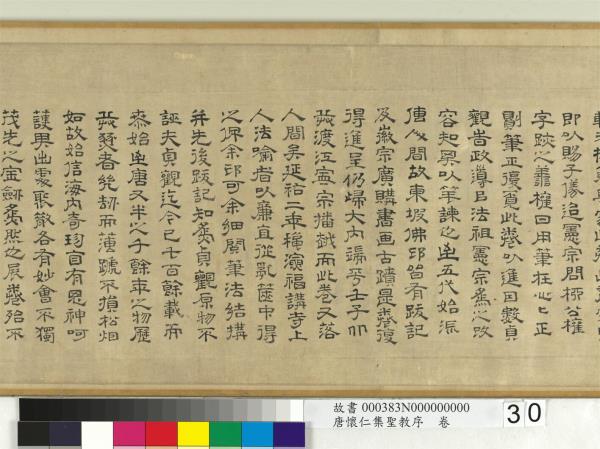 即以賜子儀迨憲宗問柳公權
字蹟之善權曰用筆在心心正
則筆正復書此卷以進因數貞
觀昔政導臣法祖憲宗為之改
容起眾以筆諫之至五代始流
傳人間故東坡佛印皆有跋記
及徽宗廣購書画古蹟是卷復
得進呈仍歸大內端平壬子
渡江寧宗播越而此卷又落
人間矣延祐二年 演福講寺上
人法喻者以廉宜從亂篋中得
之 余印可余細閱筆法結構
并先後跋記知為貞觀原物不
誣夫貞觀迄今已七百餘載而
泰始至唐又半之千餘年之物歷
者 刼而薄蹏不損松烟
如故始信海內奇珍自有鬼神呵
護與出處聚散各有妙會不獨
茂先之寶劍為然 展卷殆不
故書 000383N000000000
唐懷仁集聖教序 卷
30